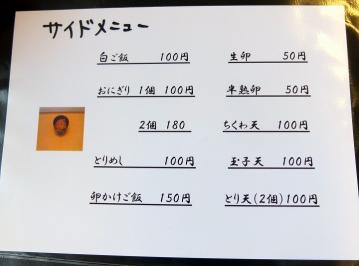 サイドメニュー
白ご飯 100円
おにぎり 1個 100円
2個 180
とりめし 100円
卵かけご飯 150円
生卵 50円
半熟卵 50円
ちくわ天 100円
玉子天 100円
とり天(2個)100円